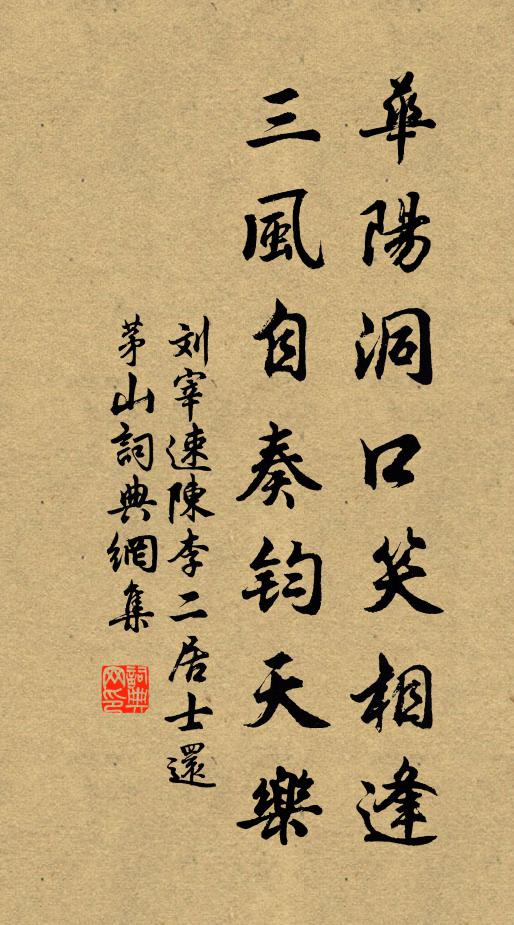 華陽洞口笑相逢
三風自奏鈞天樂
刘宰速陳李二居士還
茅山詞典網集
詞典网印